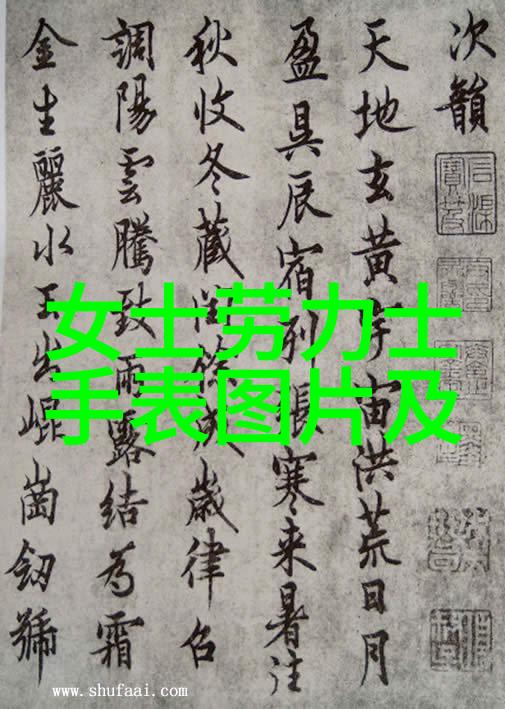 次韻
天地玄黃宇宙洪荒日月
盈昃辰宿列張寒来暑往
秋收冬藏閏餘成歲律召
調陽雲騰致雨露結為霜
金生麗水玉出崐崗劒號
女士劳力士
手表图片及
www.shufaai.com